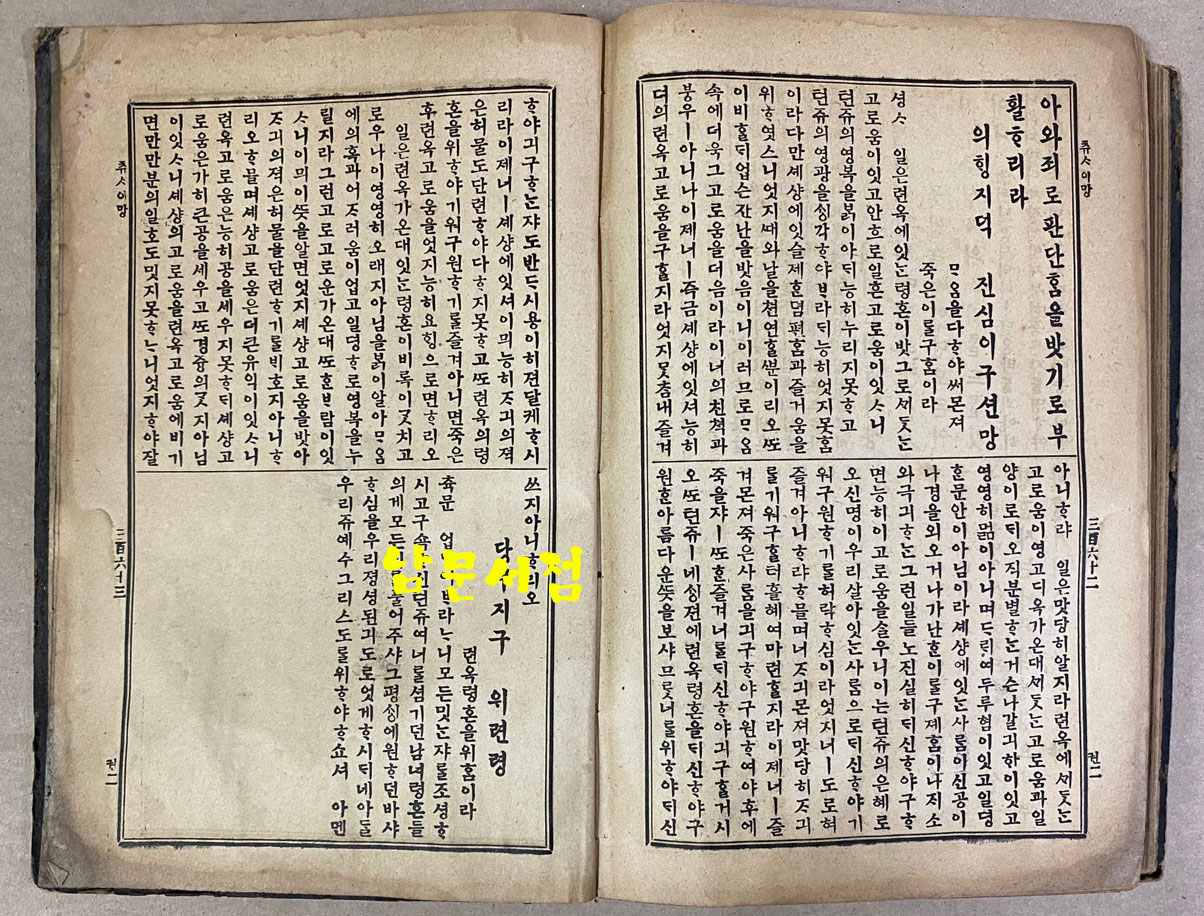 쥬ᄉᆞ이망
三百六十二
권二
아와죄로판단ᄒᆞᆷ을밧기로부
활ᄒᆞ리라
의ᄒᆡᆼ지덕 진심이구션망
ᄆᆞᄋᆞᆷ을다ᄒᆞ야써몬져
죽은이ᄅᆞᆯ구ᄒᆞᆷ이라
셩ᄉᆞ 일은련옥에잇ᄂᆞᆫ령혼이밧그로ᄭᆡᄃᆞᆺᄂᆞᆫ
고로움이잇고안흐로일흔고로움이잇ᄉᆞ니
텬쥬의영복을ᄇᆞᆰ이아ᄃᆡ능히누리지못ᄒᆞ고
텬쥬의영광을ᄉᆡᆼ각ᄒᆞ야ᄇᆞ라ᄃᆡ능히엇지못ᄒᆞᆷ
이라다만셰샹에잇슬제ᄒᆞᆫ뎜편ᄒᆞᆷ과즐거움을
위ᄒᆞ엿스니엇지ᄯᅢ와날을쳔연ᄒᆞᆯᄲᅮᆫ이리오ᄯᅩ
이비ᄒᆞᆯᄃᆡ업슨잔난을밧음이니이러므로ᄆᆞᄋᆞᆷ
속에더욱그고로움을더음이라이너의친쳑과
붕우ㅣ아니냐이제너ㅣ즉금셰샹에잇셔능히
뎌의련옥고로움을구ᄒᆞᆯ지라엇지ᄆᆞᄎᆞᆷ내즐겨
아니ᄒᆞ랴 일은맛당히알지라련옥에ᄭᆡᄃᆞᆺᄂᆞᆫ
고로움이영고디옥가온대ᄭᆡᄃᆞᆺᄂᆞᆫ고로움과일
양이로ᄃᆡ오직분별ᄒᆞᄂᆞᆫ거슨나갈긔한이잇고
영영히멂이아니며ᄃᆞᄃᆡ여두루혐이잇고일뎡
ᄒᆞᆫ문안이아님이라셰샹에잇ᄂᆞᆫ사ᄅᆞᆷ이신공이
나경을외오거나가난ᄒᆞᆫ이ᄅᆞᆯ구졔ᄒᆞᆷ이나ᄌᆡ소
와극긔ᄒᆞᄂᆞᆫ그런일들노진실히ᄃᆡ신ᄒᆞ야구ᄒᆞ
면능히이고로움을솔우니이ᄂᆞᆫ텬쥬의은혜로
오신명이우리살아잇ᄂᆞᆫ사ᄅᆞᆷ으로ᄃᆡ신ᄒᆞ야기
워구원ᄒᆞ기ᄅᆞᆯ허락ᄒᆞ심이라엇지너ㅣ도로혀
즐겨아니ᄒᆞ랴ᄒᆞ믈며너ᄌᆞ긔몬져맛당히ᄌᆞ긔
ᄅᆞᆯ기워구ᄒᆞᆯ터흘혜여마련ᄒᆞᆯ지라이제너ㅣ즐
겨몬져죽은사ᄅᆞᆷ을긔구ᄒᆞ야구원ᄒᆞ여야후에
죽을쟈ㅣᄯᅩᄒᆞᆫ즐겨너ᄅᆞᆯᄃᆡ신ᄒᆞ야긔구ᄒᆞᆯ거시
오ᄯᅩ텬쥬ㅣ네ᄉᆡᆼ젼에련옥령혼을ᄃᆡ신ᄒᆞ야구
원ᄒᆞᆫ아ᄅᆞᆷ다온ᄯᅳᆺ을보샤므ᄅᆞᆺ너ᄅᆞᆯ위ᄒᆞ야ᄃᆡ신
ᄒᆞ야긔구ᄒᆞᄂᆞᆫ쟈도반ᄃᆞ시용이히젼달케ᄒᆞ시
리라이제너ㅣ셰샹에잇셔이믜능히ᄌᆞ긔의젹
은허물도단련ᄒᆞ야다ᄒᆞ지못ᄒᆞ고ᄯᅩ련옥의령
혼을위ᄒᆞ야기워구원ᄒᆞ기ᄅᆞᆯ즐겨아니면죽은
후련옥고로움을엇지능히요ᄒᆡᆼ으로면ᄒᆞ리오
일은련옥가온대잇ᄂᆞᆫ령혼이비록이ᄀᆞᆺ치고
로우나이영영히오래지아님을ᄇᆞᆰ이알아ᄆᆞᄋᆞᆷ
에의혹과어ᄌᆞ러움이업고일뎡ᄒᆞ로영복을누
릴지라그런고로고로운가온대ᄯᅩᄒᆞᆫᄇᆞ람이잇
ᄉᆞ니이믜이ᄯᅳᆺ을알면엇지셰샹고로움을밧아
ᄌᆞ긔의젹은허물을단련ᄒᆞ기ᄅᆞᆯᄇᆡ호지아니ᄒᆞ
리오ᄒᆞ믈며셰샹고로움은더큰유익이잇ᄉᆞ니
련옥고로움은능히공을셰우지못ᄒᆞᄃᆡ셰샹고
로움은가히큰공을셰우고ᄯᅩ경즁의ᄀᆞᆺ지아님
이잇ᄉᆞ니셰샹의고로움을련옥고로움에비기
면만만분의일호도밋지못ᄒᆞᄂᆞ니엇지ᄒᆞ야잘
쓰지아니ᄒᆞ리오
지구 위련령
련옥령혼을위ᄒᆞᆷ이라
츅문 업ᄃᆡ여ᄇᆞ라ᄂᆞ니모든밋ᄂᆞᆫ쟈ᄅᆞᆯ조셩ᄒᆞ
시고구쇽ᄒᆞ신텬쥬여너ᄅᆞᆯ셤기던남녀령혼들
의게모든죄ᄅᆞᆯ풀어주샤그평ᄉᆡᆼ에원ᄒᆞ던바샤
ᄒᆞ심을우리졍셩된긔도로엇게ᄒᆞ시ᄃᆡ네아ᄃᆞᆯ
우리쥬예수그리스도ᄅᆞᆯ위ᄒᆞ야ᄒᆞ쇼셔 아멘
쥬ᄉᆞ이망
三百六十三
권二
남문서점